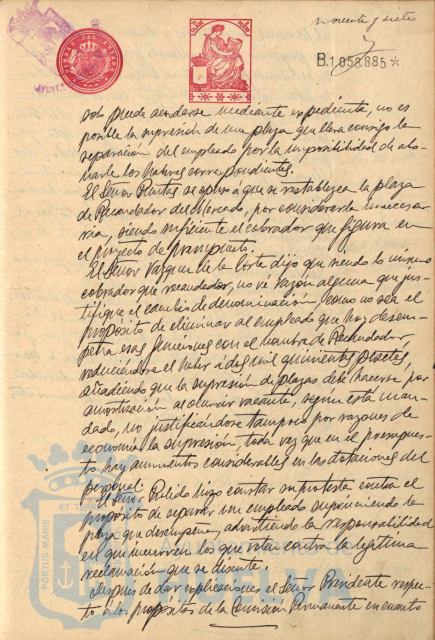 noventa y siete
B.1.058.885*
solo puede acordarse mediante expediente, no es
posible la supresión de una plaza que lleva consigo la
separación del empleado por la imposibilidad de abo-
narle los haberes correspondientes.
El Señor se opuso a que se restablezca la plaza
de Recaudador del Mercado, por considerarla innecesa-
ria, siendo suficiente el cobrador que figura en
el proyecto de presupuesto.
El Señor Vazquez de la Corte dijo que siendo lo mismo
cobrador que recaudador, no vé razón alguna que jus-
tifique el cambio de denominación como no sea el
propósito de eliminar al empleado que hoy desem-
peña esas funciones con el nombre de Recaudador
reduciéndose el haber a dos mil quinientas pesetas,
añadiendo que la supresión de plazas debe hacerse por
amortización al ocurrir vacante, según está man-
dado, no justificándose tampoco por razones de
economía la supresión, toda vez que en el presupues-
to hay aumentos considerables en las dotaciones del
personal.
El Señor Pulido hizo constar su protesta contra el
propósito de separar un empleado suprimiendo la
plaza que desempeña, advirtiendo la responsabilidad
en que incurren los que voten contra la legítima
reclamación que se discute.
Después de dar explicaciones el Señor Presidente respec-
to a los propósitos de la Comisión Permanente en cuanto
PORTUS MARIS
ET TERRAE
HUELVA